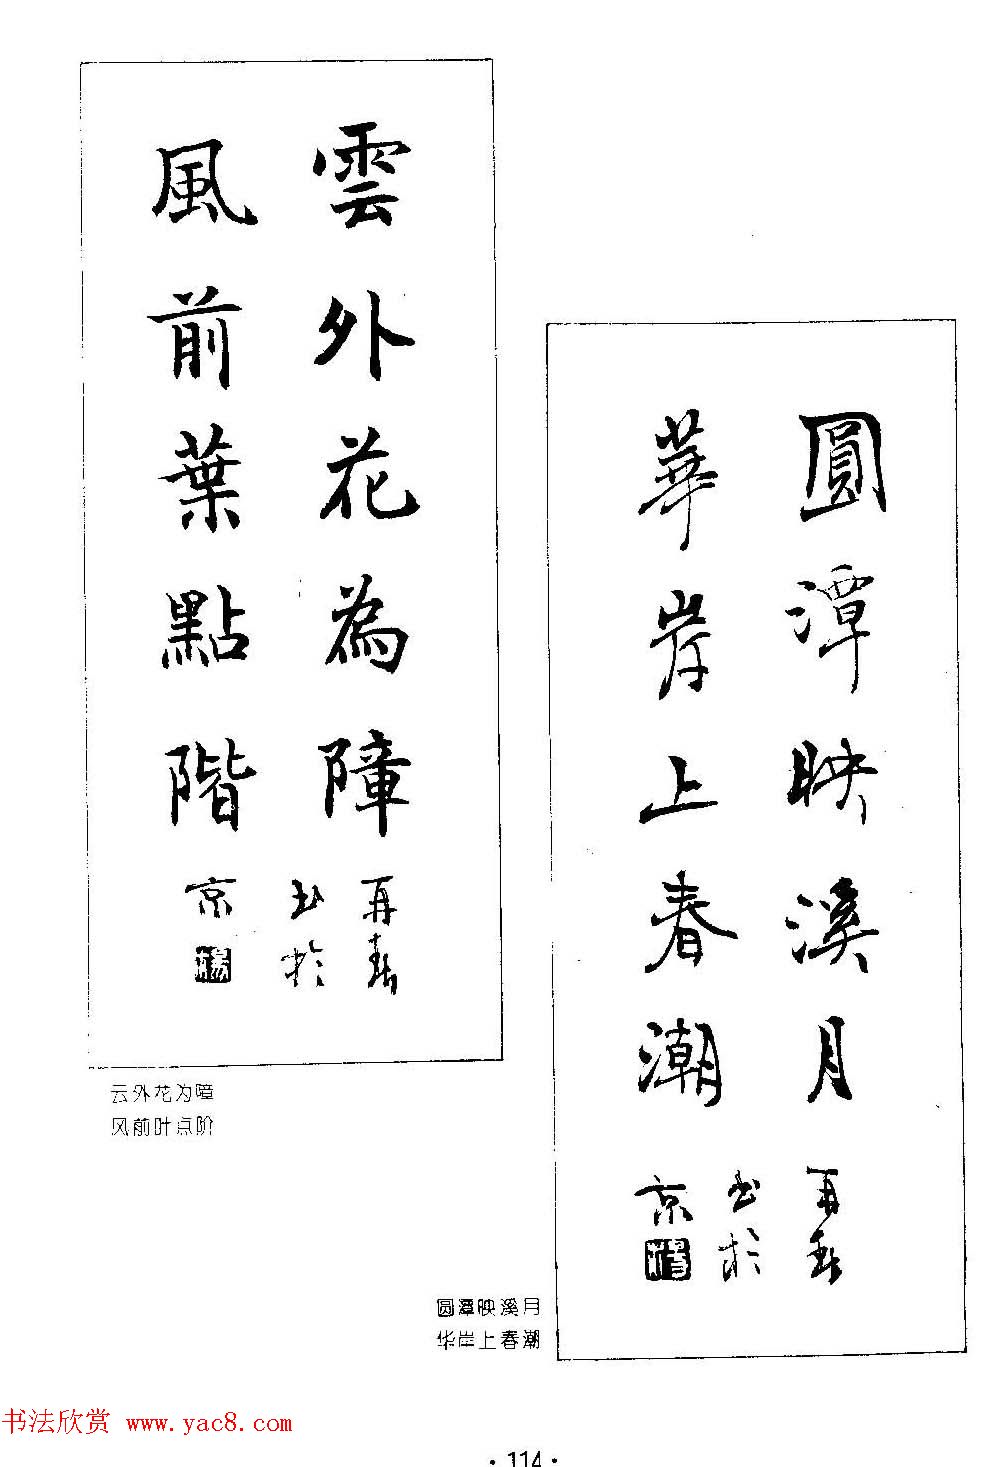 雲外花為障
風前葉點階
再春
书於
京
云外花为障
风前叶点阶
圓潭映溪月
華岸上春潮
再春
书於
京
圆潭映溪月
华岸上春潮
书法欣赏 www.yac8.com
·114·